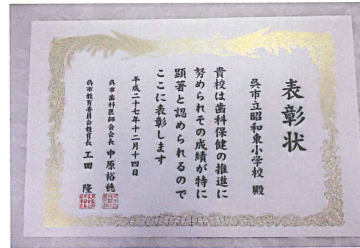 表彰状
呉市立昭和東小学校 殿
貴校は歯科保健の推進に
努められその成績が特に
顕著と認められるので
ここに表彰します
平成二十七年十二月十四日
呉市歯科医師会会長 中原裕穂
呉市教育委員会教育長 工田 隆